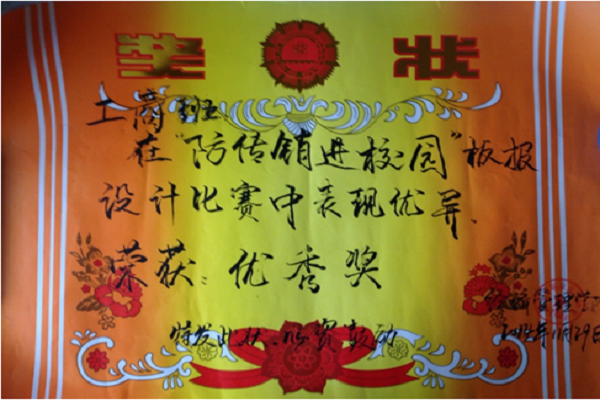 奖状
工商班
在“防传销进校园”板报
设计比赛中表现优异.
荣获:优秀奖
特发此状,以资鼓励
管理学
11月29日